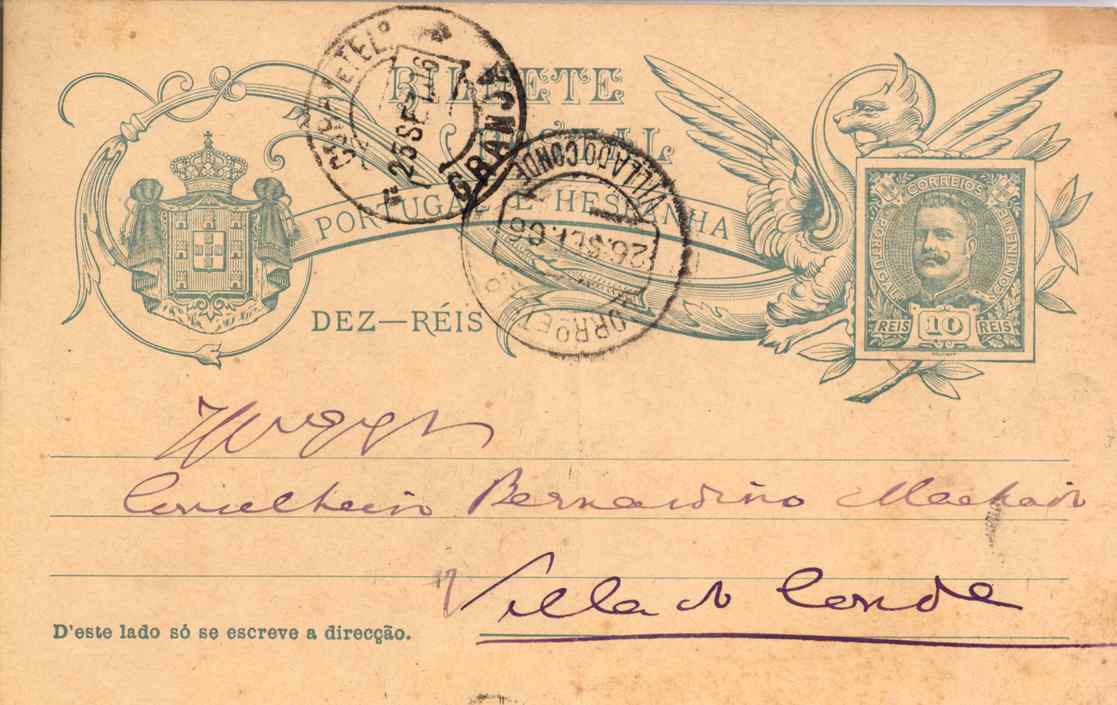 BILHETE
POSTAL
PORTUGAL E HESPANHA
DEZ—RÉIS
CORREIOS
PORTUGAL
CONTINENTE
REIS 10 REIS
25 SET. 06
GRANJA
VILLA DO CONDE
26. SET. 06
Conselheiro Bernardino Machado
Villa do Conde
D'este lado só se escreve a direcção.